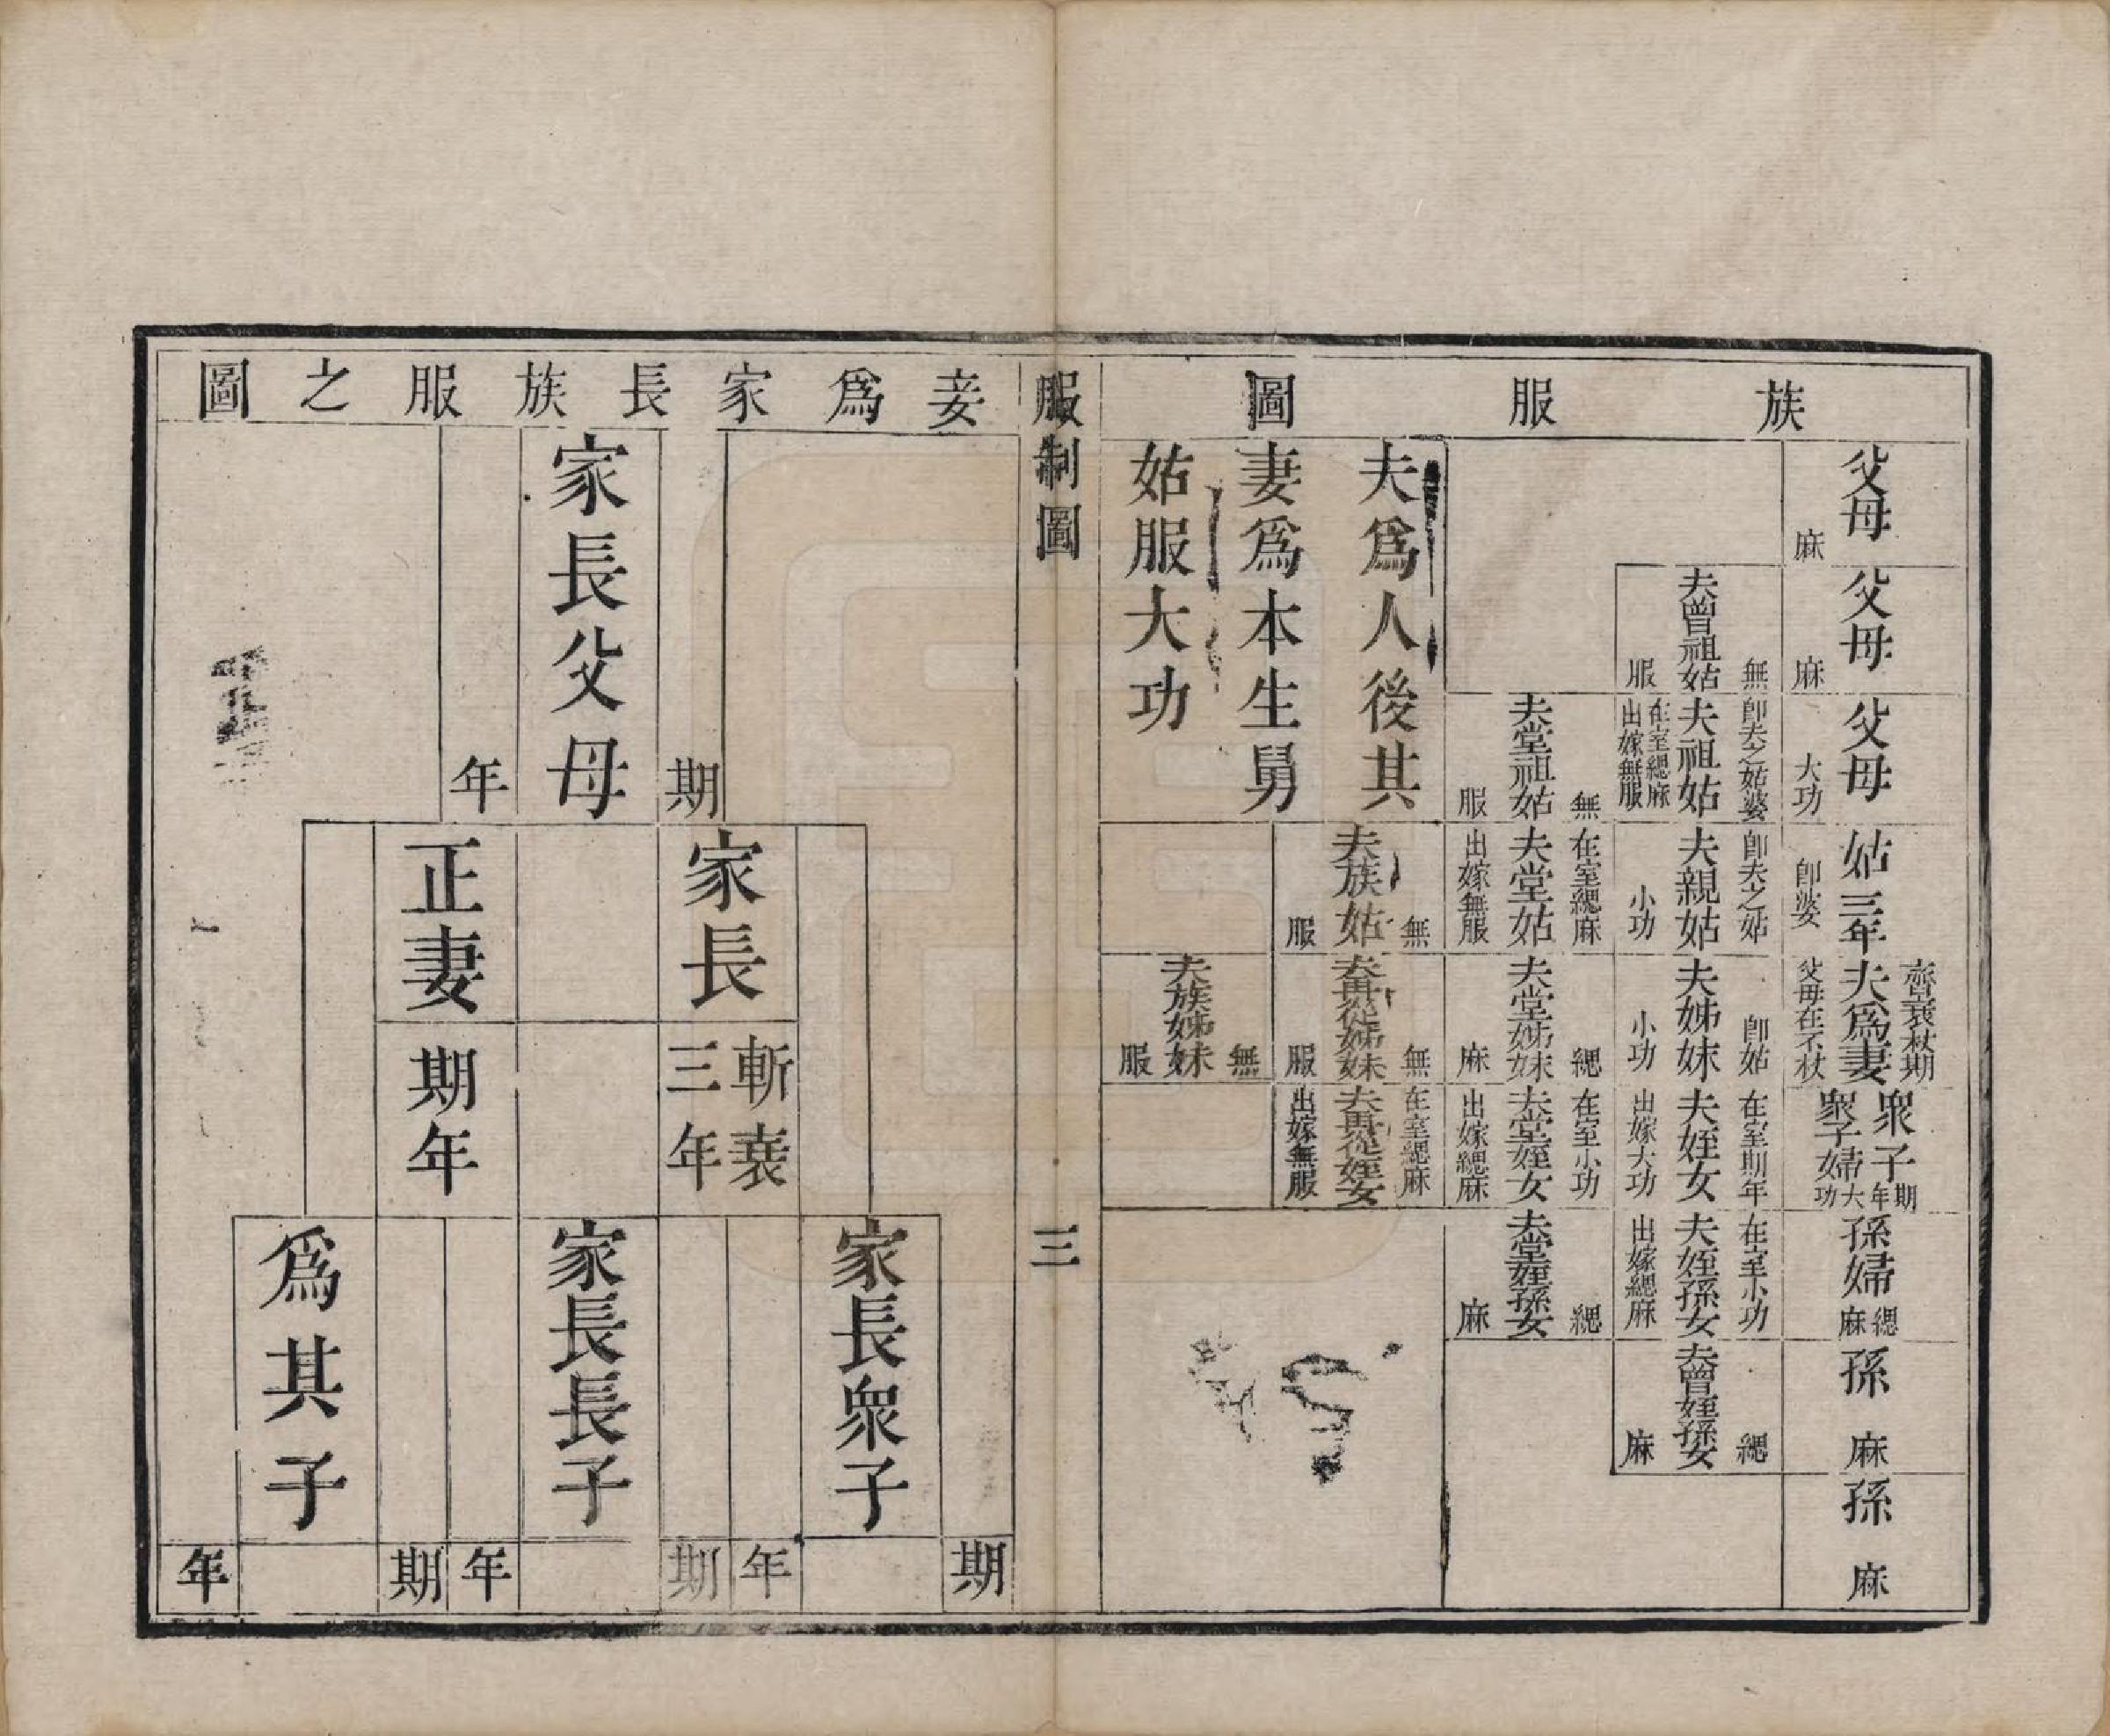 族服圖
父母
麻
父母
麻
父母
大功
姑三年
即婆
齊衰杖期
夫爲妻
父母在不杖
衆子
期年
衆子婦
大功
孫婦
緦麻
孫
麻
孫
麻
夫曾祖姑
無服
即夫之姑婆
夫祖姑
在室緦麻
出嫁無服
即夫之姑
夫親姑
小功
即姑
夫姊妹
小功
在室期年
夫姪女
出嫁大功
在室小功
夫姪孫女
出嫁緦麻
夫曾姪孫女
緦麻
夫堂祖姑
無服
在室緦麻
夫堂姑
出嫁無服
夫堂姊妹
緦麻
在室小功
夫堂姪女
出嫁緦麻
夫堂姪孫女
緦麻
夫爲人後其
妻爲本生舅
姑服大功
夫族姑
無服
夫再從姊妹
無服
在室緦麻
夫再從姪女
出嫁無服
夫族姊妹
無服
服制圖
三
妾爲家長族服之圖
家長父母
期年
家長
斬衰
三年
正妻
期年
家長衆子
期年
家長長子
期年
爲其子
期年